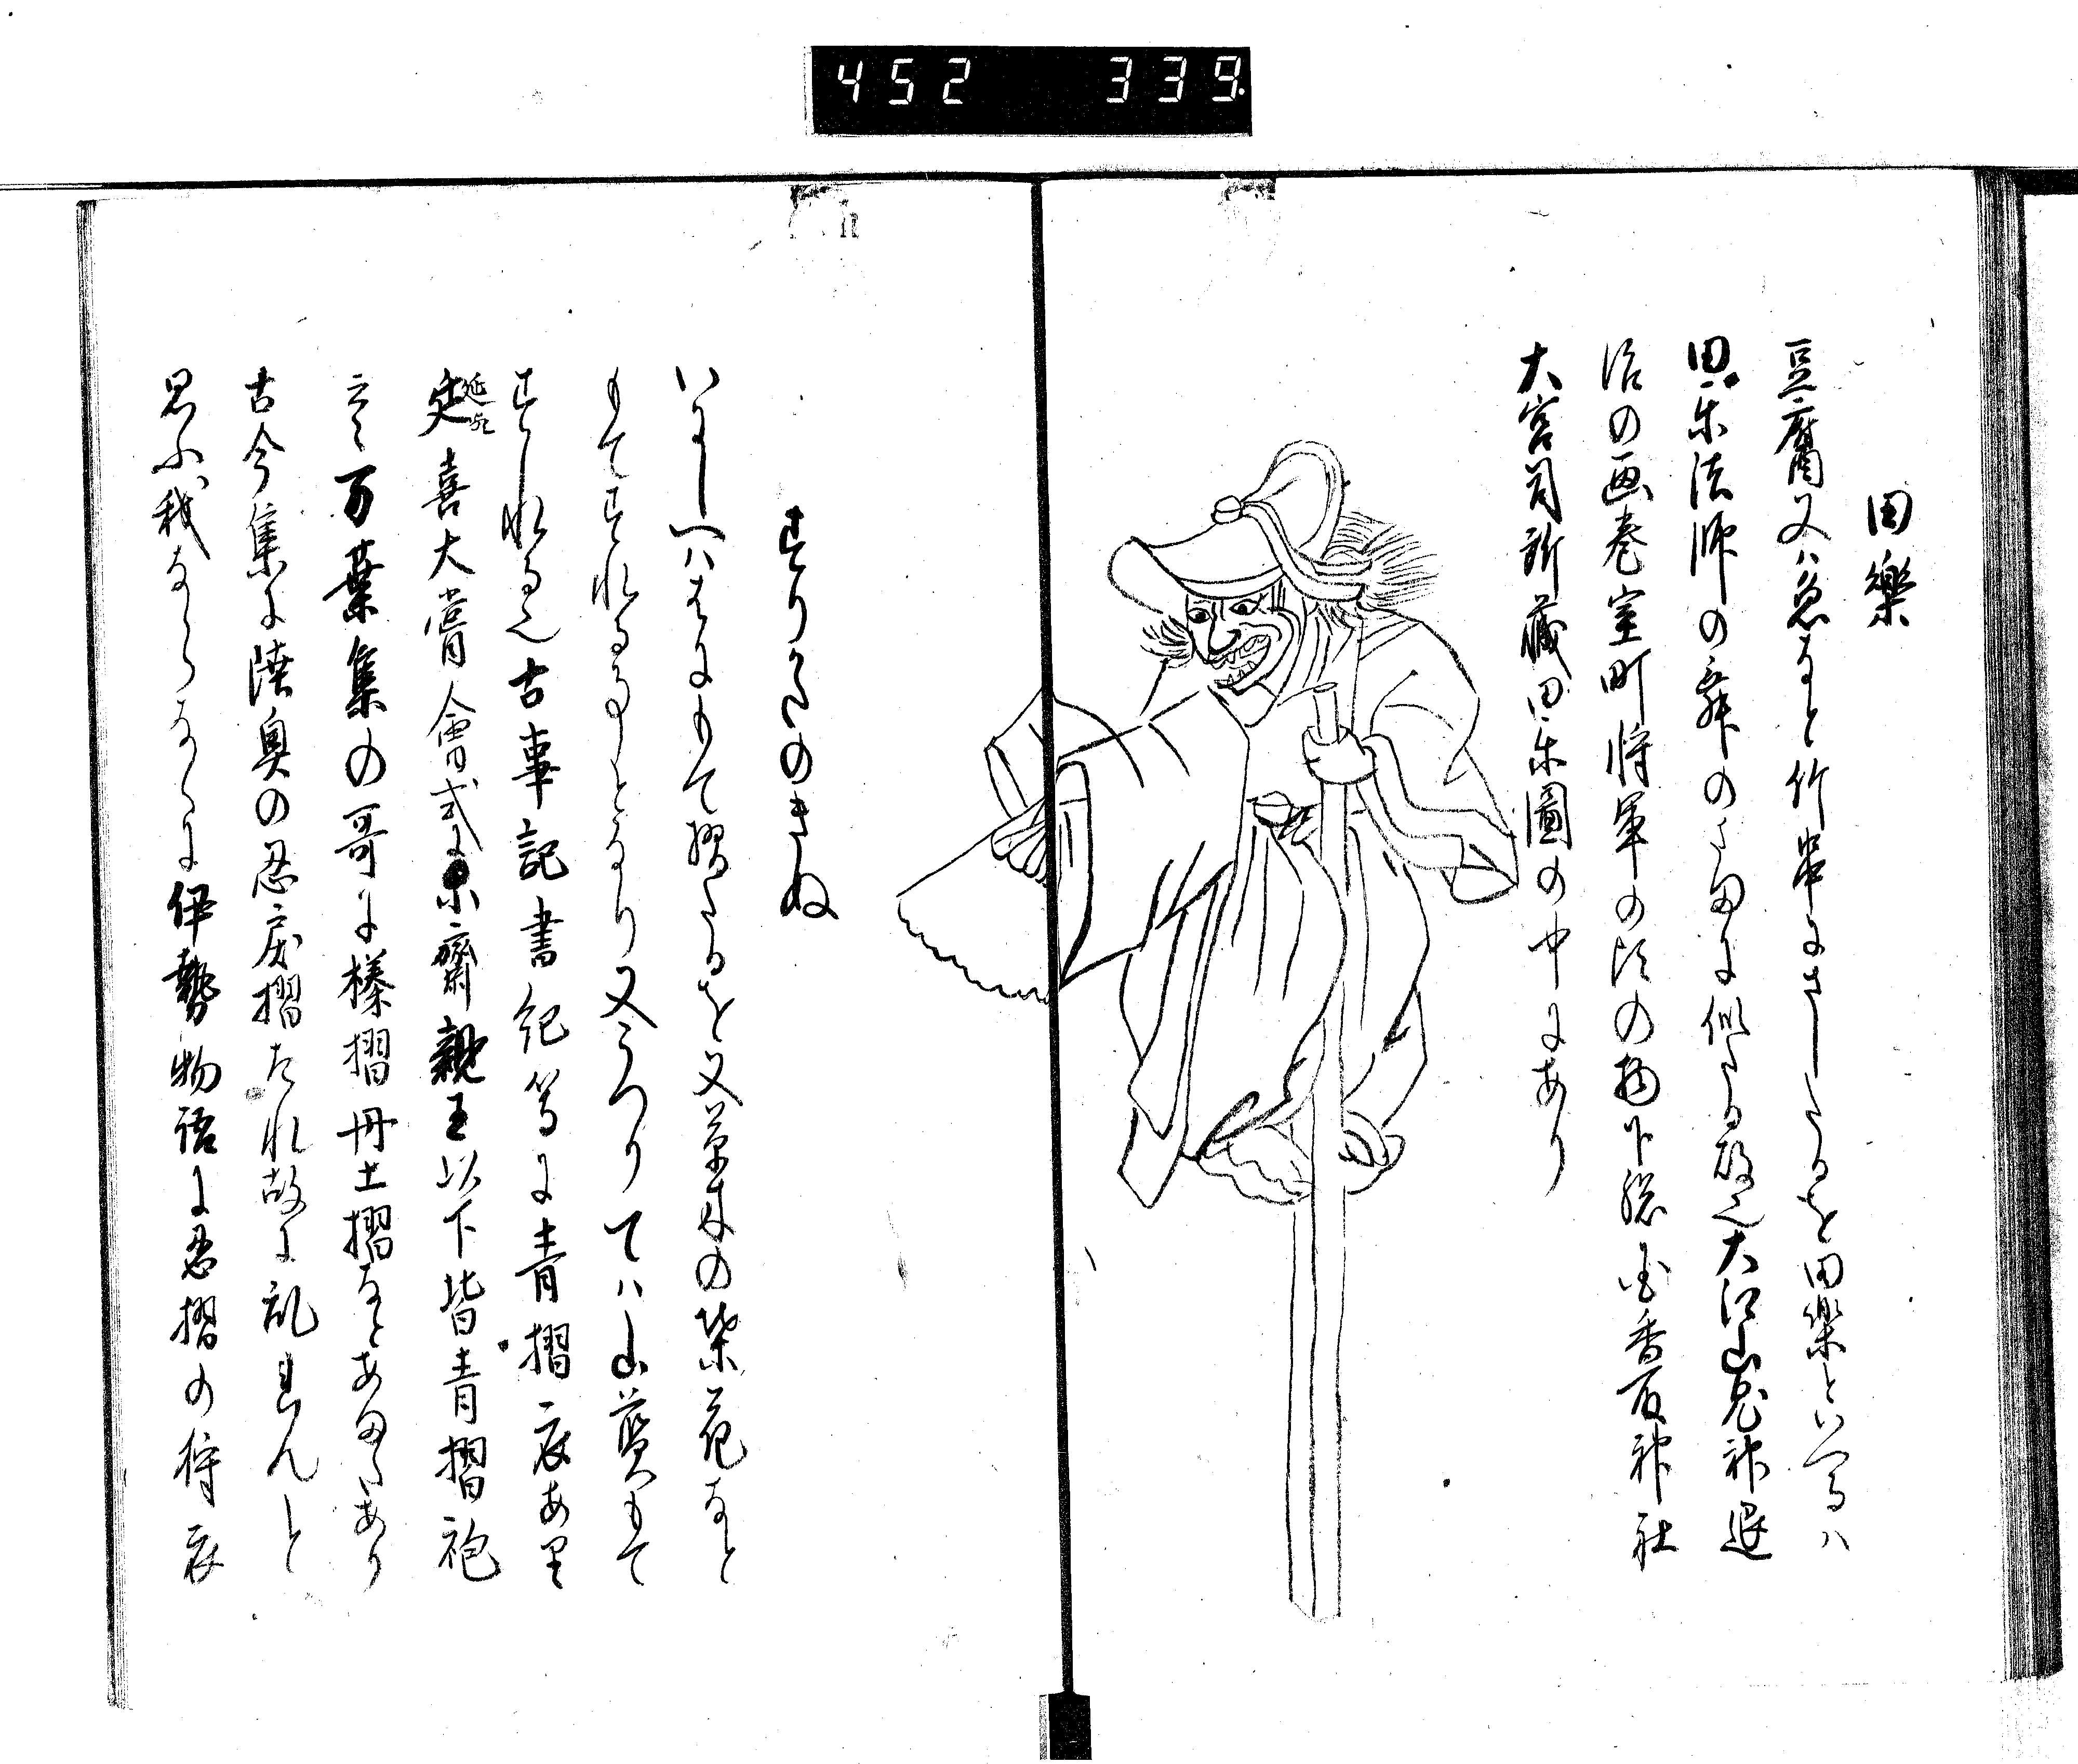 452 339
田樂
豆腐又ハ魚なと竹串にさしたるを田樂といへるハ
田楽法師の舞のさまに似たる故也大江山鬼神退
治の画巻室町将軍の頃の物下総国香取神社
大宮司所蔵田楽圖の中にあり
すりかたのきぬ
いにしへハはにもて摺たるを又草木の葉花なと
もてすれる事となり又うつりてハ山藍もて
すれる也古事記書紀等に青摺衣あり
延喜大嘗會式に小斎親王以下皆青摺袍
云々万葉集の哥に榛摺丹土摺なとあまたあり
古今集に陸奥の忍戻摺たれ故に乱れんと
思ふ我ならなくに伊勢物語に忍摺の狩衣